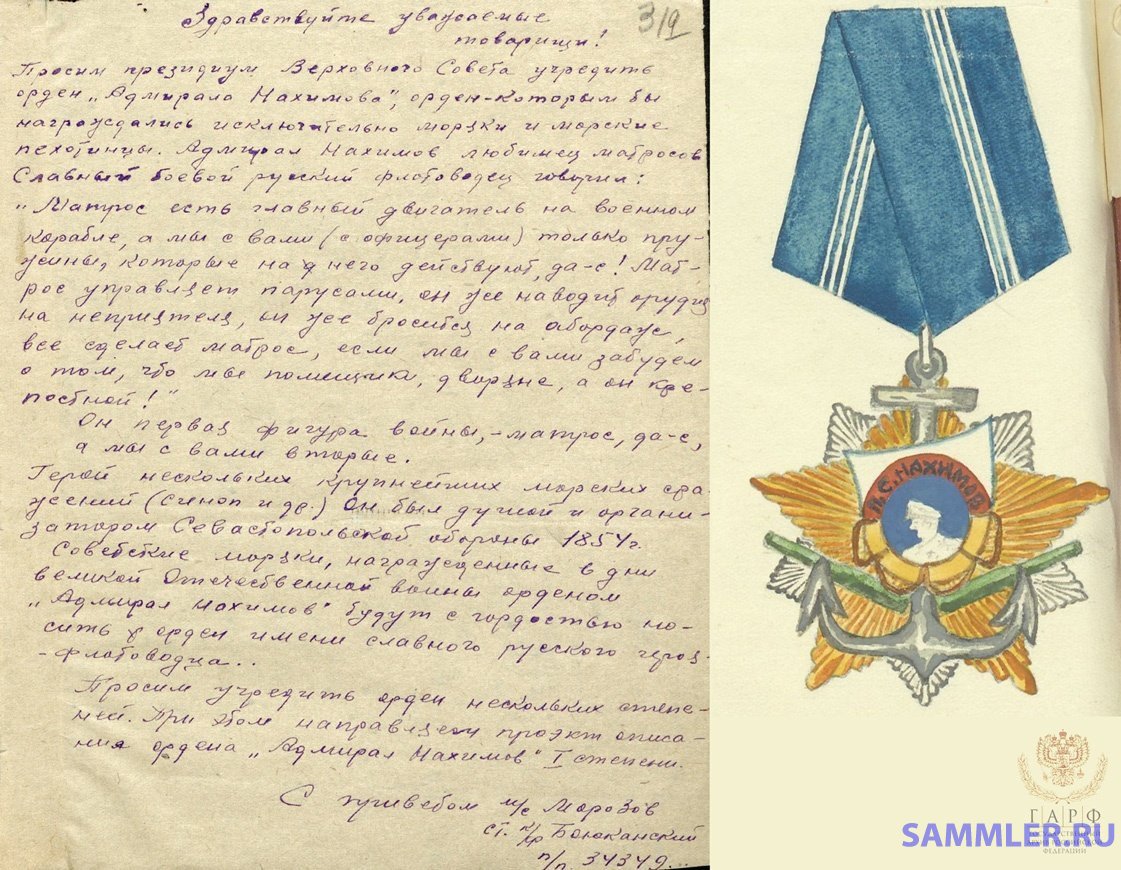 Здравствуйте уважаемые
товарищи!
319
Просим президиум Верховного Совета учредить
орден „Адмирала Нахимова", орден-которым бы
награждались исключительно моряки и морские
пехотинцы. Адмирал Нахимов любимец матросов
Славный боевой русский флотоводец говорил:
„Матрос есть главный двигатель на военном
корабле, а мы с вами (с офицерами) только пру-
жины, которые на него действуют, да-с! Мат-
рос управляет парусами, он же наводит орудия
на неприятеля, он же бросится на абордаж,
все сделает матрос, если мы с вами забудем
о том, что мы помещики, дворяне, а он кре-
постной!"
Он первая фигура войны, -матрос, да-с,
а мы с вами вторые.
Герой нескольких крупнейших морских сра-
жений (Синоп и др.) Он был душой и органи-
затором Севастопольской обороны 1854г.
Советские моряки, награжденные в дни
великой Отечественной войны орденом
„Адмирал Нахимов" будут с гордостью но-
сить орден имени славного русского героя-
-флотоводца..
Просим учредить орден нескольких степе-
ней. При этом направляем проэкт описа-
ния ордена „Адмирал Нахимов" I степени.
С приветом м/с Морозов
ст. к/р Боюканский
п/п. 34349
П.С.НАХИМОВ
ГАРФ
ГОСУДАРСТВЕННЫЙ
АРХИВ РОССИЙСКОЙ
ФЕДЕРАЦИИ
SAMMLER.RU